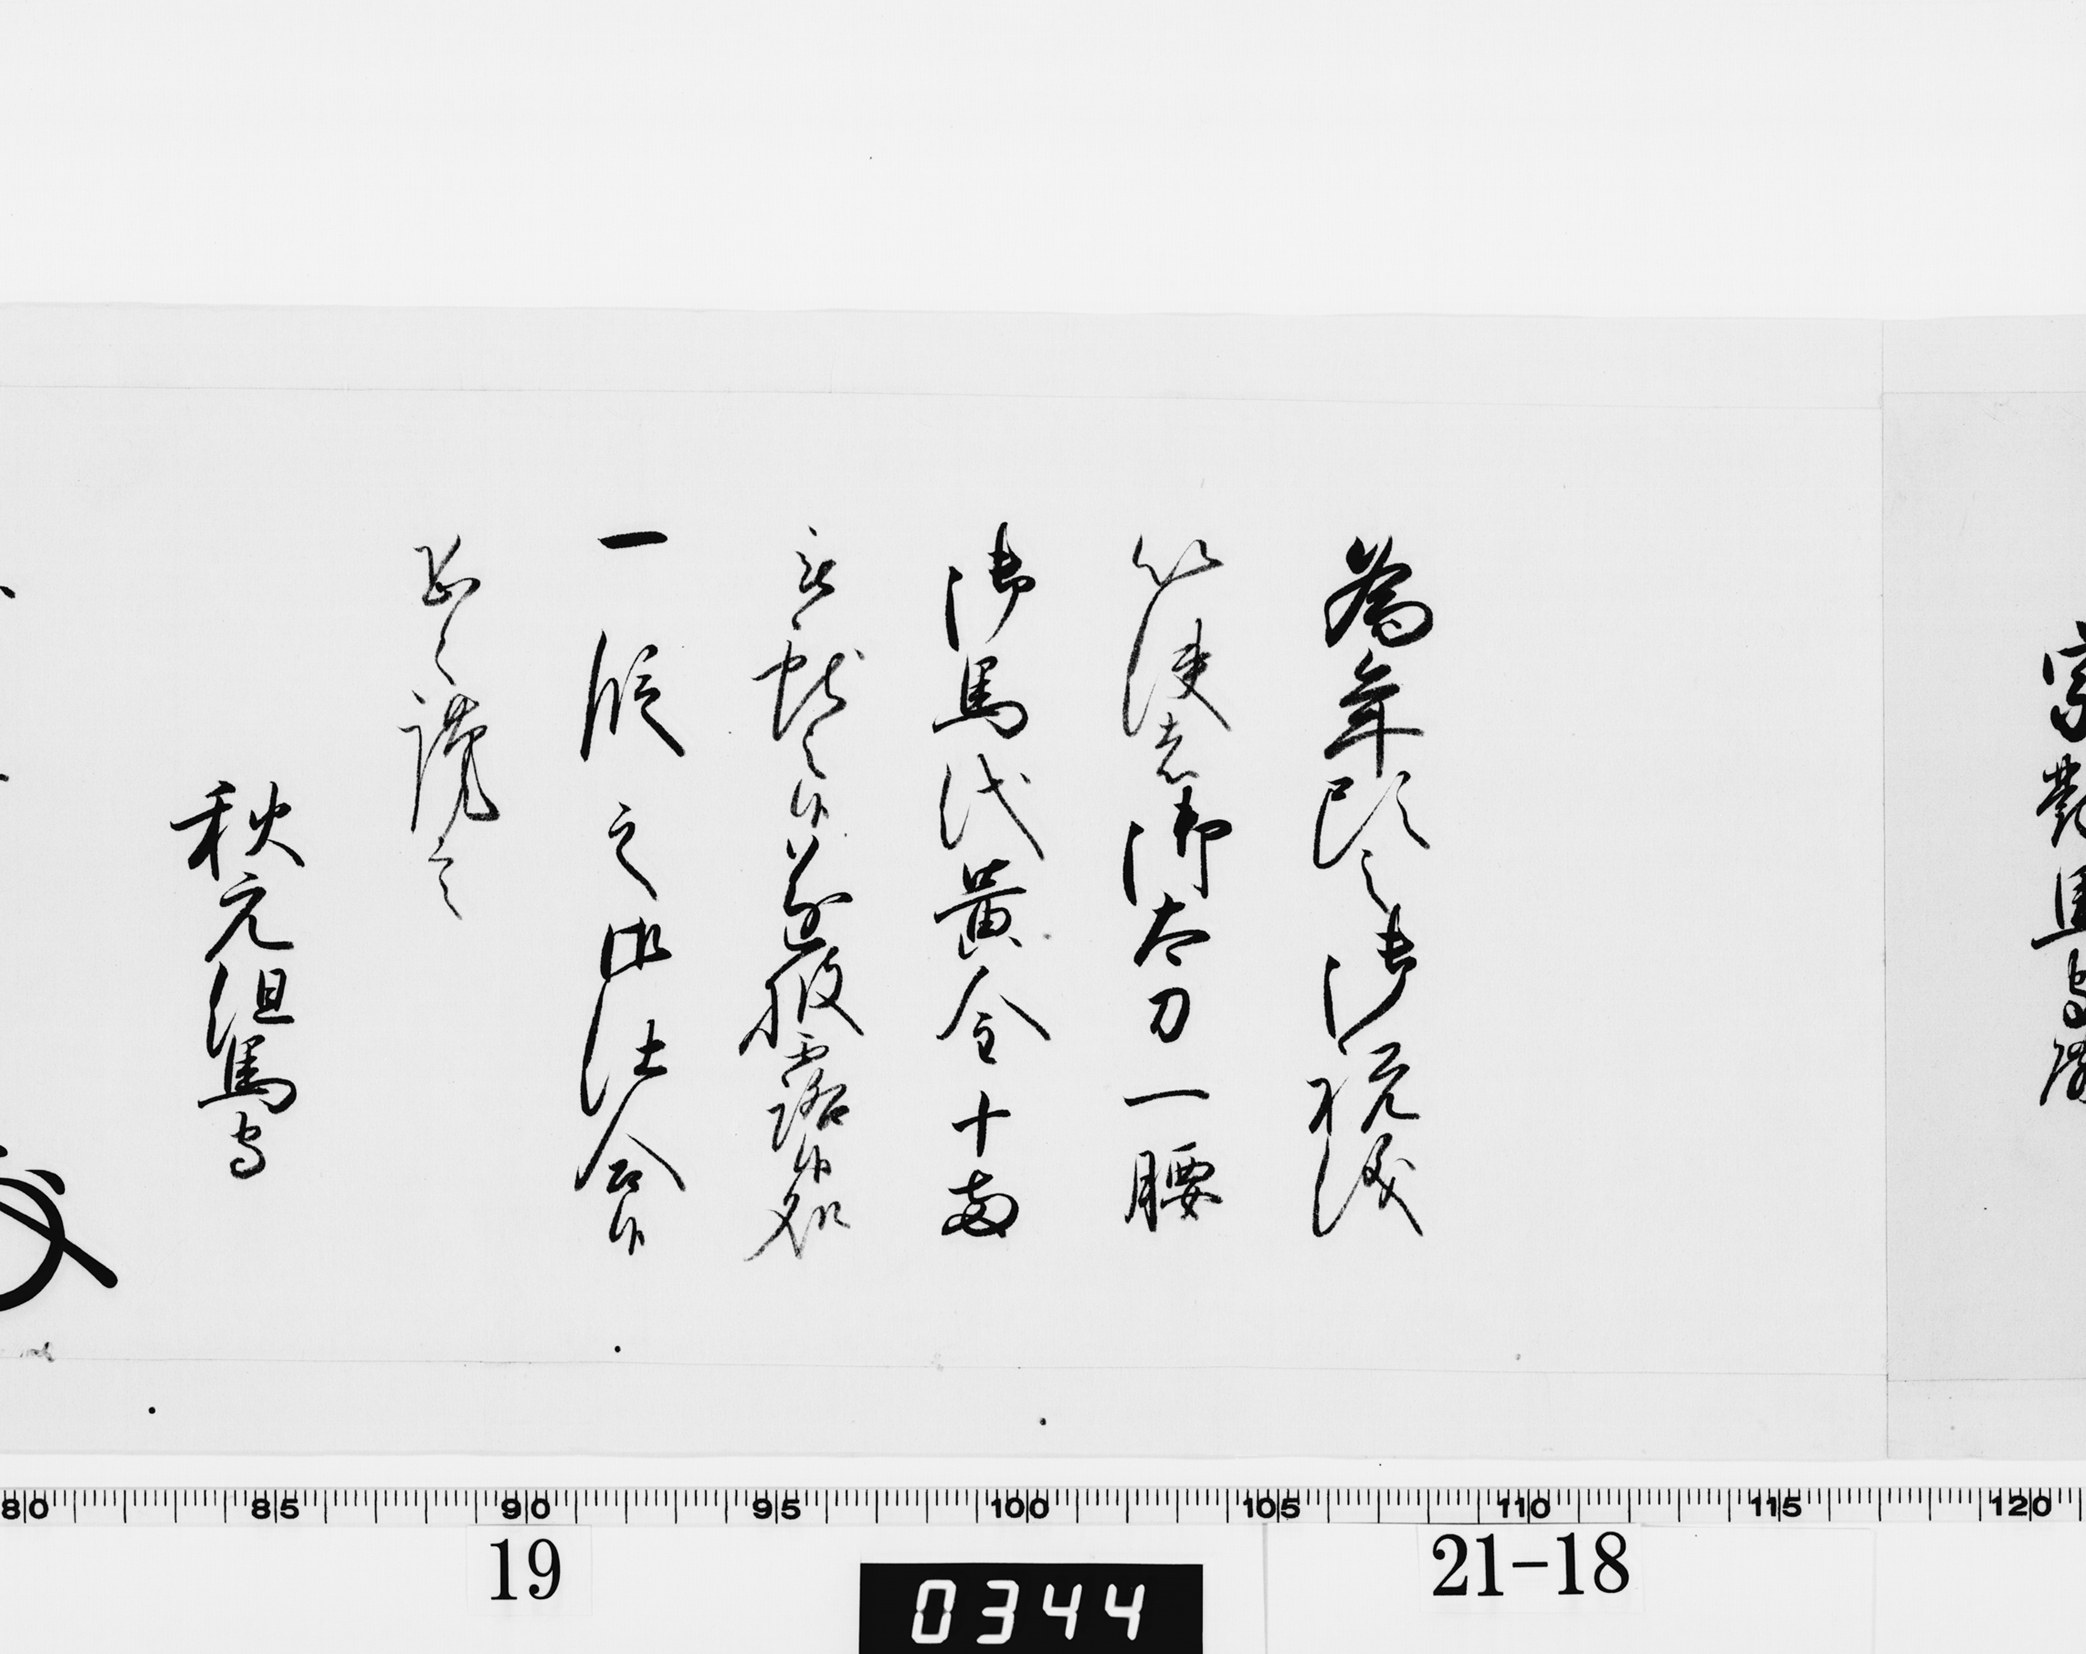 宗對馬守殿
為年頭之御祝儀
以使者御太刀一腰
御馬代黄金十両
被献之候遂披露候処
一段之御仕合候
恐々謹言
秋元但馬守
80 85 90 95 100 105 110 115 120
19
0344
21-18